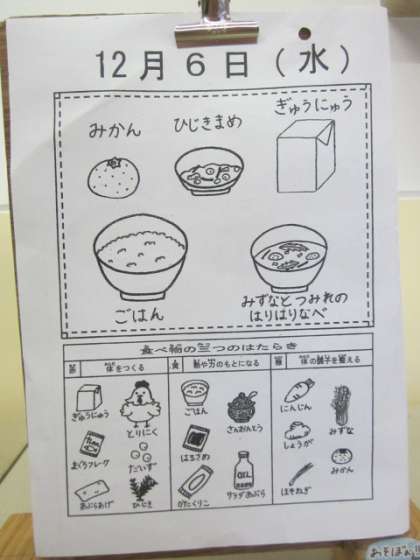 12月6日(水)
みかん
ひじきまめ
ぎゅうにゅう
ごはん
みずなとつみれの
はりはりなべ
食べ物の三つのはたらき
赤 体をつくる
黄 熱や力のもとになる
緑 体の調子を整える
ぎゅうにゅう
とりにく
まぐろフレーク
だいず
あぶらあげ
ひじき
ごはん
さんおんとう
はるさめ
かたくりこ
OIL
サラダあぶら
にんじん
みずな
しょうが
みかん
ほそねぎ